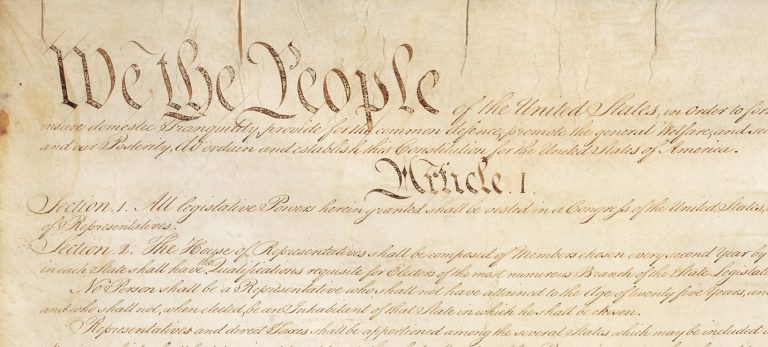 We the People of the United States, in order to for
insure domestic Tranquility, provide for the common defence, promote the general Welfare, and sec
and our Posterity, do ordain and establish this Constitution for the United States of America.
Article. I.
Section. 1. All legislative Powers herein granted shall be vested in a Congress of the United States,
of Representatives.
Section. 2. The House of Representatives shall be composed of Members chosen every second Year by
in each State shall have the Qualifications requisite for Electors of the most numerous Branch of the State Legislat
No Person shall be a Representative who shall not have attained to the Age of twenty five Years, an
and who shall not, when elected, be an Inhabitant of that State in which he shall be chosen.
Representatives and direct Taxes shall be apportioned among the several States which may be included